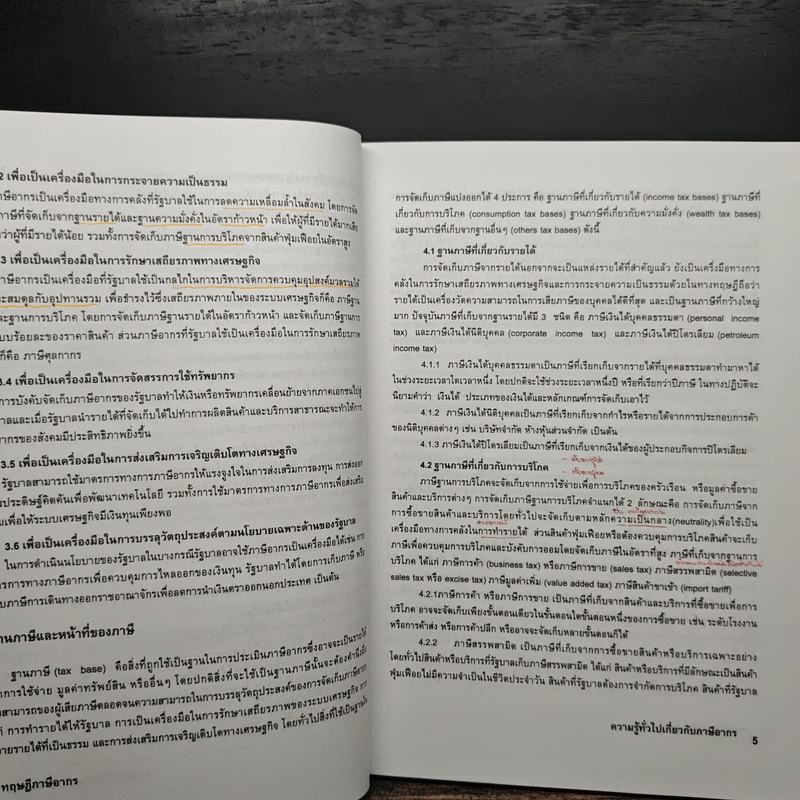 2 เพื่อเป็นเครื่องมือในการกระจายความเป็นธรรม
ภาษีอากรเป็นเครื่องมือทางการคลังที่รัฐบาลใช้ในการลดความเหลื่อมล้ำในสังคม โดยการจัด
ภาษีที่จัดเก็บจากฐานรายได้และฐานความมั่งคั่งในอัตราก้าวหน้า เพื่อให้ผู้ที่มีรายได้มากเสีย
ว่าผู้ที่มีรายได้น้อย รวมทั้งการจัดเก็บภาษีฐานการบริโภคจากสินค้าฟุ่มเฟือยในอัตราสูง
3 เพื่อเป็นเครื่องมือในการรักษาเสถียรภาพทางเศรษฐกิจ
ภาษีอากรเป็นเครื่องมือที่รัฐบาลใช้เป็นกลไกในการบริหารจัดการควบคุมอุปสงค์มวลรวมให้
และสมดุลกับอุปทานรวม เพื่อธำรงไว้ซึ่งเสถียรภาพภายในของระบบเศรษฐกิจก็คือ ภาษีฐาน
และฐานการบริโภค โดยการจัดเก็บภาษีฐานรายได้ในอัตราก้าวหน้า และจัดเก็บภาษีฐานการ
บบร้อยละของราคาสินค้า ส่วนภาษีอากรที่รัฐบาลใช้เป็นเครื่องมือในการรักษาเสถียรภาพ
ก็คือ ภาษีศุลกากร
3.4 เพื่อเป็นเครื่องมือในการจัดสรรการใช้ทรัพยากร
การบังคับจัดเก็บภาษีอากรของรัฐบาลทำให้เงินหรือทรัพยากรเคลื่อนย้ายจากภาคเอกชนไปสู่
าลและเมื่อรัฐบาลนำรายได้ที่จัดเก็บได้ไปทำการผลิตสินค้าและบริการสาธารณะจะทำให้การ
ากรของสังคมมีประสิทธิภาพยิ่งขึ้น
3.5 เพื่อเป็นเครื่องมือในการส่งเสริมการเจริญเติบโตทางเศรษฐกิจ
รัฐบาลสามารถใช้มาตรการทางการภาษีอากรให้แรงจูงใจในการส่งเสริมการลงทุน การส่งออก
รประดิษฐ์คิดค้นเพื่อพัฒนาเทคโนโลยี รวมทั้งการใช้มาตรการทางการภาษีอากรเพื่อส่งเสริม
มเพื่อให้ระบบเศรษฐกิจมีเงินทุนเพียงพอ
3.6 เพื่อเป็นเครื่องมือในการบรรลุวัตถุประสงค์ตามนโยบายเฉพาะด้านของรัฐบาล
ในการดำเนินนโยบายของรัฐบาลในบางกรณีรัฐบาลอาจใช้ภาษีอากรเป็นเครื่องมือได้เช่น การ
การทางภาษีอากรเพื่อควบคุมการไหลออกของเงินทุน รัฐบาลทำได้โดยการเก็บภาษี หรือ
บภาษีการเดินทางออกราชอาณาจักรเพื่อลดการนำเงินตราออกนอกประเทศ เป็นต้น
านภาษีและหน้าที่ของภาษี
ฐานภาษี (tax base) คือสิ่งที่ถูกใช้เป็นฐานในการประเมินภาษีอากรซึ่งอาจจะเป็นรายได้
าการใช้จ่าย มูลค่าทรัพย์สิน หรืออื่นๆ โดยปกติสิ่งที่จะใช้เป็นฐานภาษีนั้นจะต้องคำนึงถึง
สามารถของผู้เสียภาษีตลอดจนความสามารถในการบรรลุวัตถุประสงค์ของการจัดเก็บภาษีอากร
ก่ การทำรายได้ให้รัฐบาล การเป็นเครื่องมือในการรักษาเสถียรภาพของระบบเศรษฐกิจ การ
ายรายได้ที่เป็นธรรม และการส่งเสริมการเจริญเติบโตทางเศรษฐกิจ โดยทั่วไปสิ่งที่ใช้เป็นฐานใน
ทฤษฎีภาษีอากร
การจัดเก็บภาษีแบ่งออกได้ 4 ประการ คือ ฐานภาษีที่เกี่ยวกับรายได้ (income tax bases) ฐานภาษีที่
เกี่ยวกับการบริโภค (consumption tax bases) ฐานภาษีที่เกี่ยวกับความมั่งคั่ง (wealth tax bases)
และฐานภาษีที่เกี่ยวกับฐานอื่นๆ (others tax bases) ดังนี้
4.1 ฐานภาษีที่เกี่ยวกับรายได้
การจัดเก็บภาษีจากรายได้นอกจากจะเป็นแหล่งรายได้ที่สำคัญแล้ว ยังเป็นเครื่องมือทางการ
คลังในการรักษาเสถียรภาพทางเศรษฐกิจและการกระจายความเป็นธรรมด้วยในทางทฤษฎีถือว่า
รายได้เป็นเครื่องวัดความสามารถในการเสียภาษีของบุคคลได้ดีที่สุด และเป็นฐานภาษีที่กว้างใหญ่
มาก ปัจจุบันภาษีที่เก็บจากฐานรายได้มี 3 ชนิด คือ ภาษีเงินได้บุคคลธรรมดา (personal income
tax) และภาษีเงินได้นิติบุคคล (corporate income tax) และภาษีเงินได้ปิโตรเลียม (petroleum
income tax)
4.1.1 ภาษีเงินได้บุคคลธรรมดาเป็นภาษีที่เรียกเก็บจากรายได้ที่บุคคลธรรมดาทำมาหาได้
ในช่วงระยะเวลาใดเวลาหนึ่ง โดยปกติจะใช้ช่วงระยะเวลาหนึ่งปี หรือที่เรียกว่าปีภาษี ในทางปฏิบัติจะ
นิยามคำว่า เงินได้ ประเภทของเงินได้และหลักเกณฑ์การจัดเก็บเอาไว้
4.1.2 ภาษีเงินได้นิติบุคคลเป็นภาษีที่เรียกเก็บจากกำไรหรือรายได้จากการประกอบการค้า
ของนิติบุคคลต่างๆ เช่น บริษัทจำกัด ห้างหุ้นส่วนจำกัด เป็นต้น
4.1.3 ภาษีเงินได้ปิโตรเลียมเป็นภาษีที่เรียกเก็บจากเงินได้ของผู้ประกอบกิจการปิโตรเลียม
4.2 ฐานภาษีที่เกี่ยวกับการบริโภค
ภาษีฐานการบริโภคจะจัดเก็บจากการใช้จ่ายเพื่อการบริโภคของครัวเรือน หรือมูลค่าซื้อขาย
สินค้าและบริการต่างๆ การจัดเก็บภาษีฐานการบริโภคจำแนกได้ 2 ลักษณะคือ การจัดเก็บภาษีจาก
การซื้อขายสินค้าและบริการโดยทั่วไปจะจัดเก็บตามหลักความเป็นกลาง(neutrality)เพื่อใช้เป็น
เครื่องมือทางการคลังในการทำรายได้ ส่วนสินค้าฟุ่มเฟือยหรือต้องควบคุมการบริโภคสินค้าจะเก็บ
ภาษีเพื่อควบคุมการบริโภคและบังคับการออมโดยจัดเก็บภาษีในอัตราที่สูง ภาษีที่เก็บจากฐานการ
บริโภค ได้แก่ ภาษีการค้า (business tax) หรือภาษีการขาย (sales tax) ภาษีสรรพสามิต (selective
sales tax หรือ excise tax) ภาษีมูลค่าเพิ่ม (value added tax) ภาษีสินค้าขาเข้า (import tariff)
4.2.1ภาษีการค้า หรือภาษีการขาย เป็นภาษีที่เก็บจากสินค้าและบริการที่ซื้อขายเพื่อการ
บริโภค อาจจะจัดเก็บเพียงขั้นตอนเดียวในขั้นตอนใดขั้นตอนหนึ่งของการซื้อขาย เช่น ระดับโรงงาน
หรือการค้าส่ง หรือการค้าปลีก หรืออาจจะจัดเก็บหลายขั้นตอนก็ได้
4.2.2 ภาษีสรรพสามิต เป็นภาษีที่เก็บจากการซื้อขายสินค้าหรือบริการเฉพาะอย่าง
โดยทั่วไปสินค้าหรือบริการที่รัฐบาลเก็บภาษีสรรพสามิต ได้แก่ สินค้าหรือบริการที่มีลักษณะเป็นสินค้า
ฟุ่มเฟือยไม่มีความจำเป็นในชีวิตประจำวัน สินค้าที่รัฐบาลต้องการจำกัดการบริโภค สินค้าที่รัฐบาล
ความรู้ทั่วไปเกี่ยวกับภาษีอากร
5